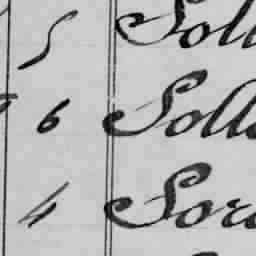 5 Soll
6 Solle
4 Sor